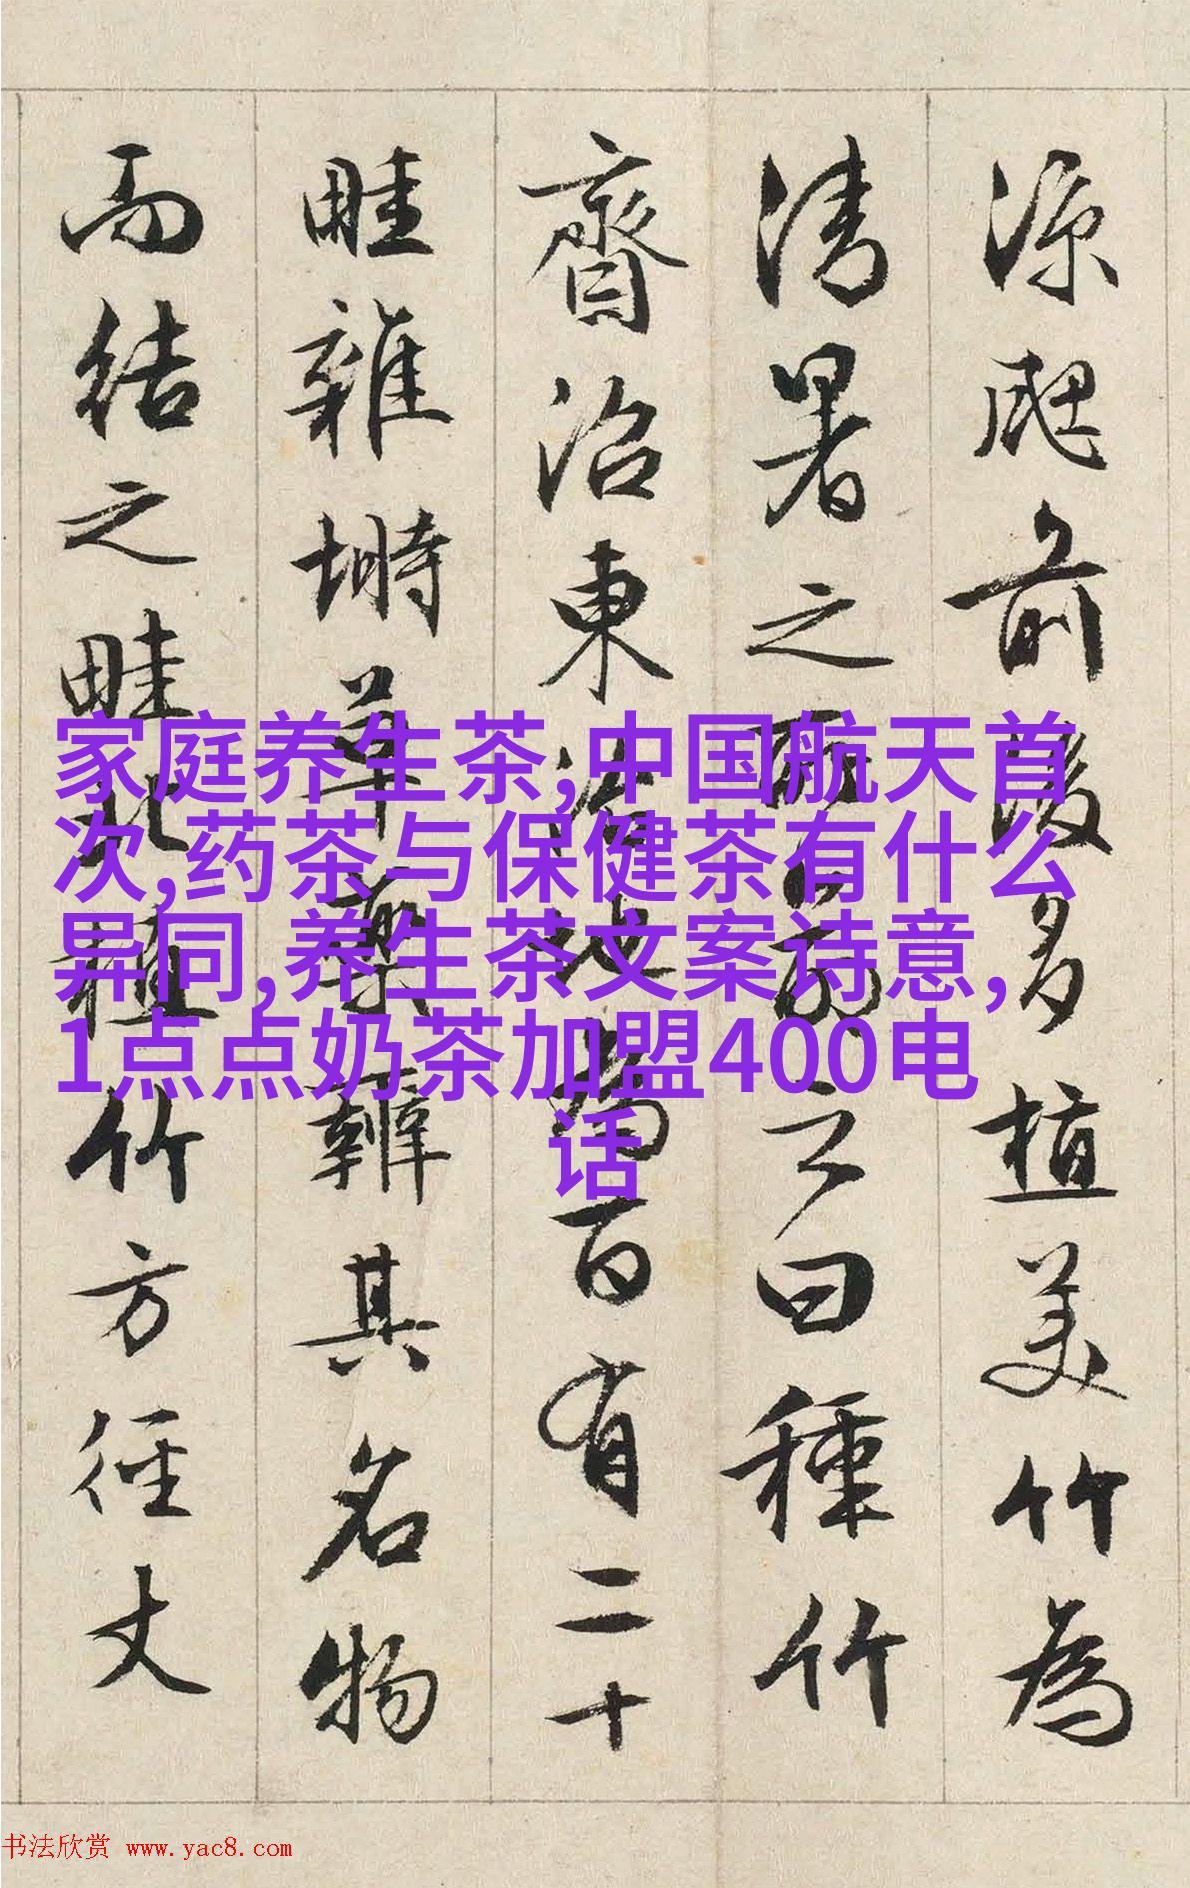 涼颸前後多植美竹為
清暑之所命之曰種竹
齋沼東治地為百有二十
畦雜塒草藥辨其名物
而結之畦北植竹方徑丈
家庭养生茶,中国航天首
次,药茶与保健茶有什么
异同,养生茶文案诗意,
1点点奶茶加盟400电
话
书法欣赏 www.yac8.com